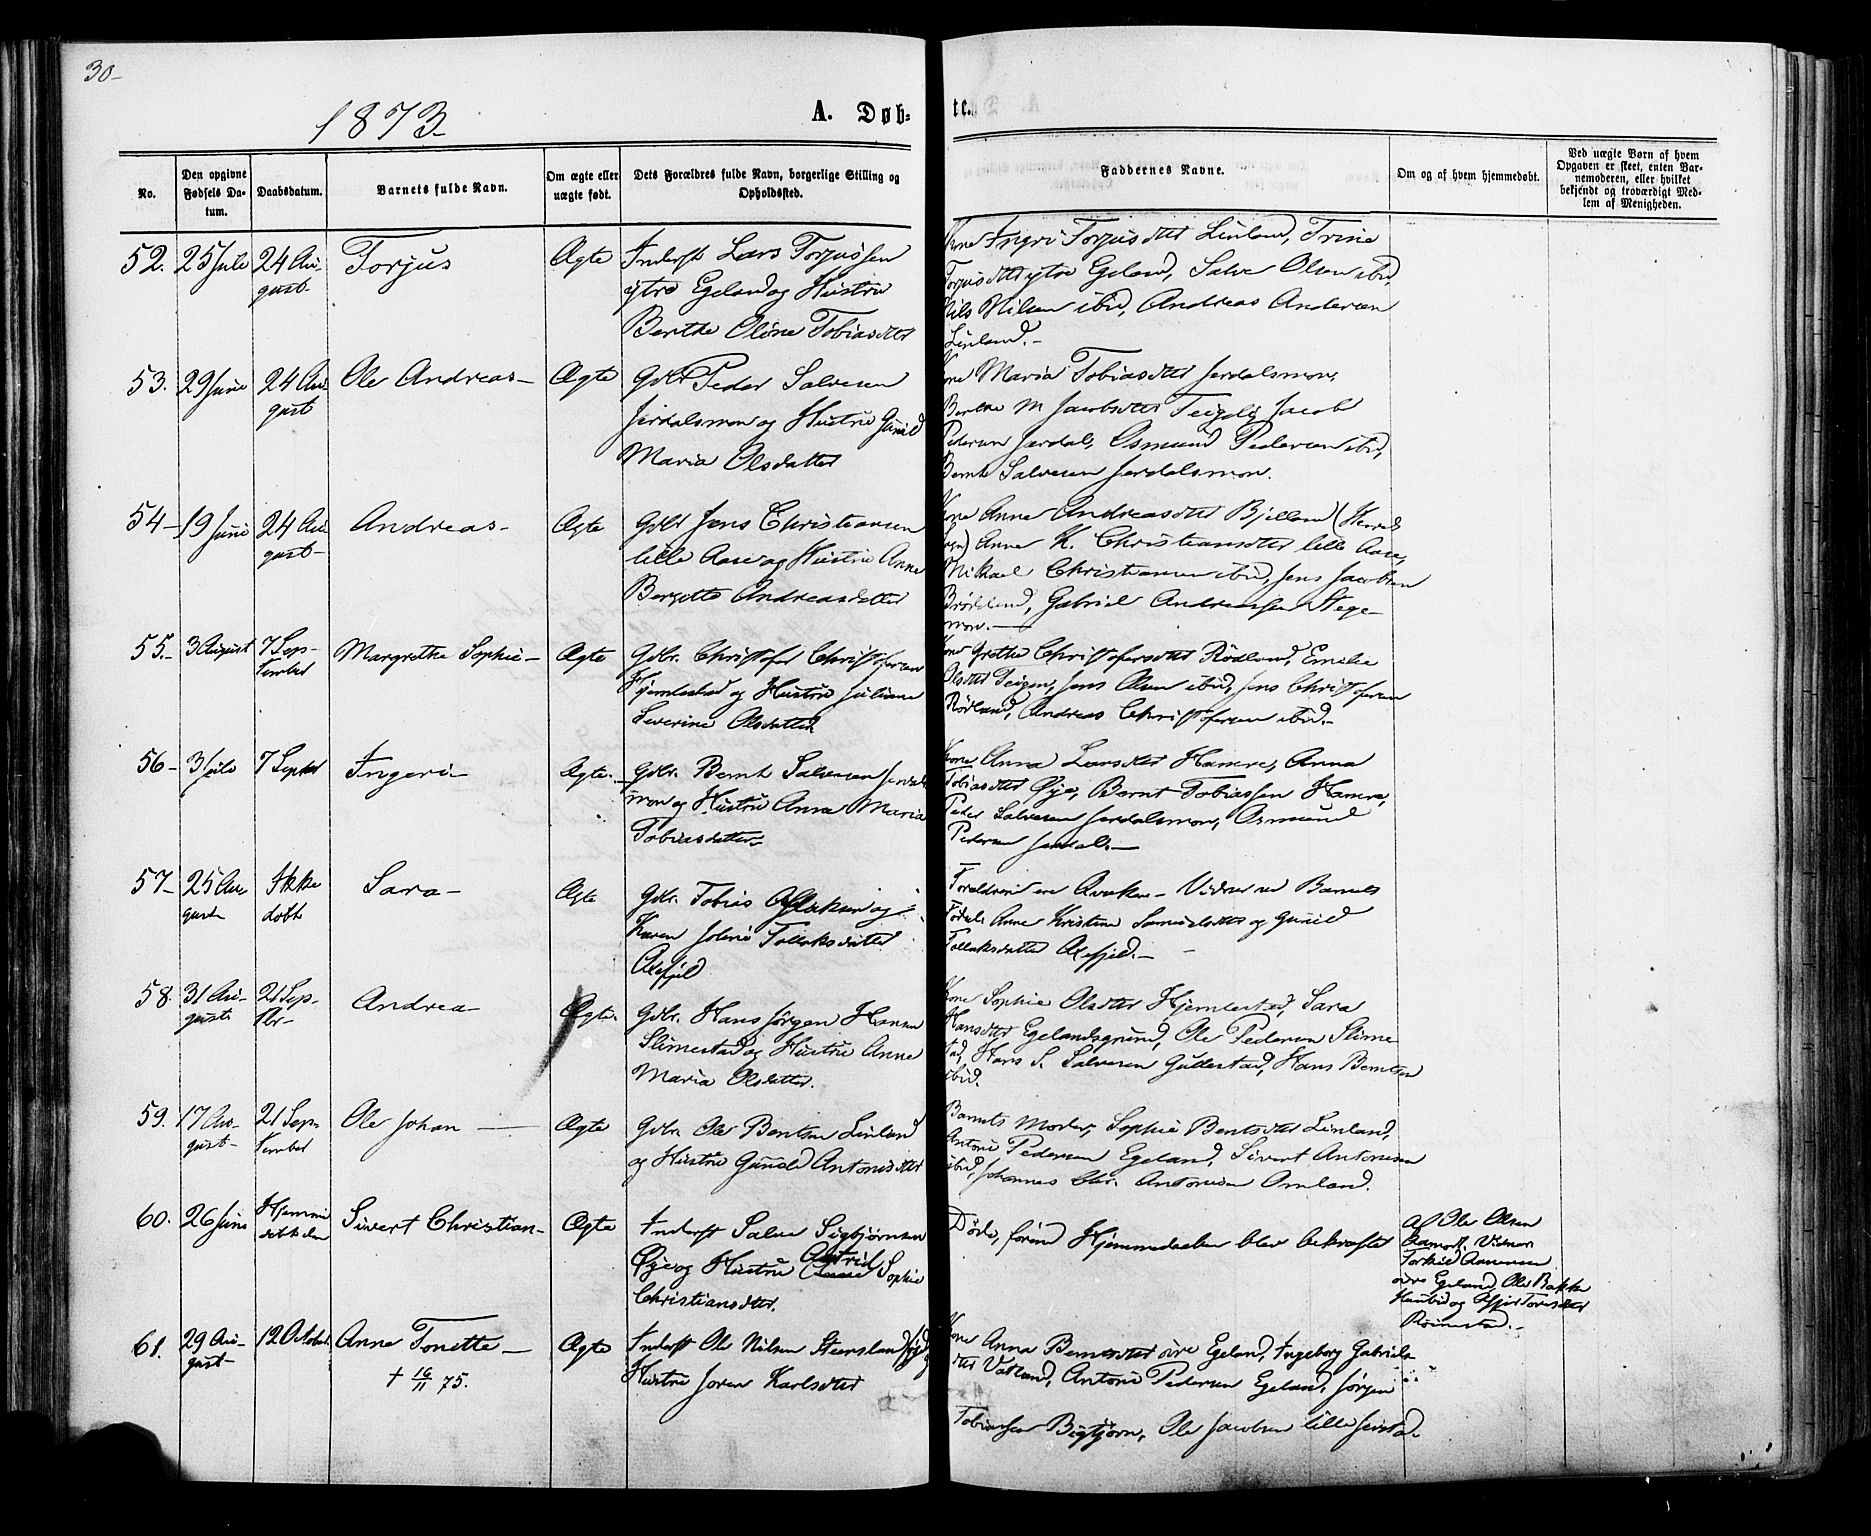 30-
1873.
A. Døb-
te.
No.
Den opgivne Fødsels Da-tum.
Daabsdatum.
Barnets fulde Navn.
Om ægte eller uægte født.
Dets Forældres fulde Navn, borgerlige Stilling og Opholdssted.
Faddernes Navne.
Om og af hvem hjemmedøbt.
Ved uægte Børn af hvem Opgaven er skeet, enten Bar-nemoderen, eller hvilket bekjendt og troværdigt Med-lem af Menigheden.
52. 25 Juli 24 Au-gust- Torjus Ægte
Inderst Lars Torjussen
ytre Egeland og Hustru
Berthe Oline Tobiasdtr
Kone Ingri Torjusdtr Linland, Trine
Torjusdtr ytre Egeland, Salve Olsen ibid,
Nils Nilsen ibid, Andreas Andersen
Linland.-
53. 29 Juni 24 Au-gust Ole Andreas- Ægte
Gdbr Peder Salvesen
Jerdalsmon og Hustru Gunild
Maria Olsdatter
Kone Maria Tobiasdtr Jerdalsmon,
Berthe M Jacobsdtr Jacob
Pedersen Jerdal, Osmund Pedersen ibid,
Bernt Salvesen Jerdalsmon.
54- 19 Juni 24 Au-gust- Andreas- Ægte
Gdbr Jens Christiansen
lille Aase og Hustru Anne
Bergitte Andreasdatter
Kone Anne Andreasdtr Bjelland (
Sogn) Anne K. Christiansdtr lille Aase,
Mikael Christiansen ibid, Jens Jacobsen
Gabriel Andreassen Stege-
mon.-
55.- 3 August 7 Sep-tember Margrethe Sophie- Ægte
Gdbr. Christofer Christofersen
Hjemlestad og Hustru Juliane
Severine Olsdatter
Kone Grethe Christofersdtr Rødland, Emelie
Olsdtr Teigen, Jens Olsen ibid, Jens Christofersen
Rødland, Andreas Christofersen ibid.-
56- 3 Juli 7 Septbr Ingeri- Ægte.
Gdbr. Bernt Salvesen Jerdals-
mon og Hustru Anne Maria
Tobiasdatter-
Kone Anna Larsdtr Hamre, Anna
Tobiasdtr Øye, Bernt Tobiassen Hamre,
Peder Salvesen Jerdalsmon, Osmund
Pedersen Jerdal.-
57- 25 Au-gust- Ikke døbt Sara- Ægte
Gdbr. Tobias Aslaksen og
Karen Tollaksdatter
Forældrene ere Qvækere- Vidner ved Barnets
Fødsel: Anne Kristine Samuelsdtr og Gunild
Tollaksdatter
58. 31 Au-gust 21 Sep-tbr- Andrea- Ægte.
Gdbr. Hans Jørgen Hansen
Slimestad og Hustru Anne
Maria Olsdatter.
Kone Sophie Olsdtr Hjemlestad, Sara
Hansdtr Egelandsgrund, Ole Pedersen Slime-
stad, Hans S. Salvesen Gullestad, Hans Berntsen
ibid.
59. 17 Au-gust- 21 Sep-tember Ole Johan - Ægte
Gdbr Ole Bentsen Linland
og Hustru Gunild Antonisdtr
Barnets Moder, Sophie Bentsdtr Linland,
Antoni Pedersen Egeland, Sivert Antonisen
ibid, Johannes Chr. Antonisen Omland.
60. 26 Juni Hjemme-døbt den Sivert Christian- Ægte
Inderst Salve Sigbjørnsen
Øye og Hustru Astrid Sophie
Christiansdtr.
Døde, førend Hjemmedaaben blev bekræftet
af Ole Olsen
Vidner
Torkild Aanensen
øvre Egeland, Ole Bakke
61. 29 Au-gust- 12 October Anne Tonette- Ægte
† 16/11 75.
Inderst Ole Nilsen og
Hustru Karlsdtr
Kone Anna Berntsdtr øvre Egeland, Ingeborg Gabriels-
dtr Vatland, Antoni Pedersen Egeland, Jørgen
Tobiassen Bigtjørn, Ole Jacobsen lille